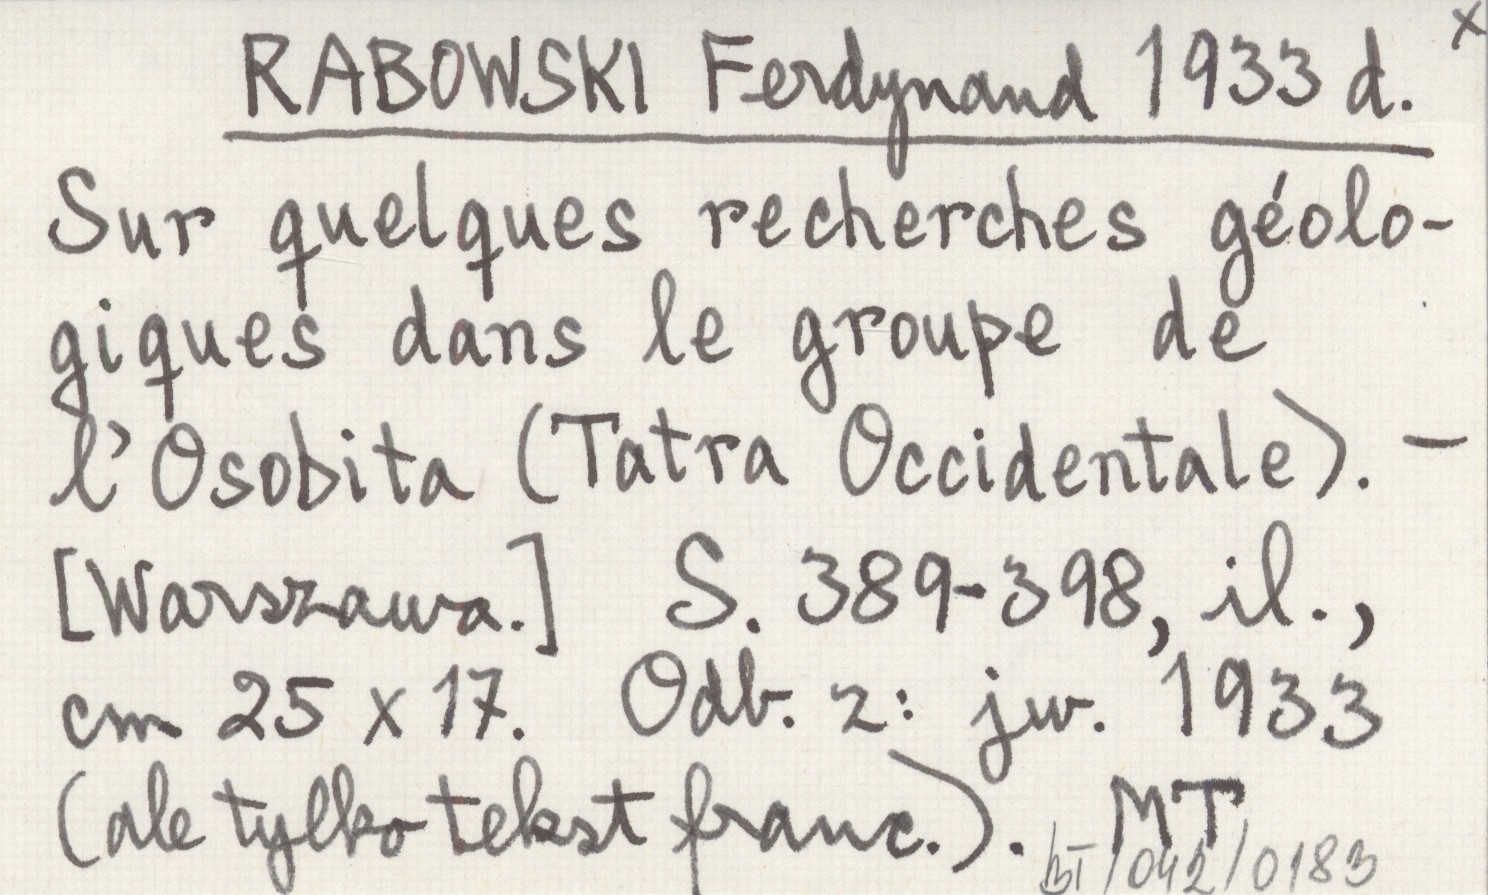 x
RABOWSKI Ferdynand 1933 d.
Sur quelques recherches géolo-
giques dans le groupe de
l'Osobita (Tatra Occidentale). -
[Warszawa.] S. 389-398, il.,
cm 25 x 17. Odb. z: jw. 1933
(ale tylko tekst franc.). MT
BT/042/0183